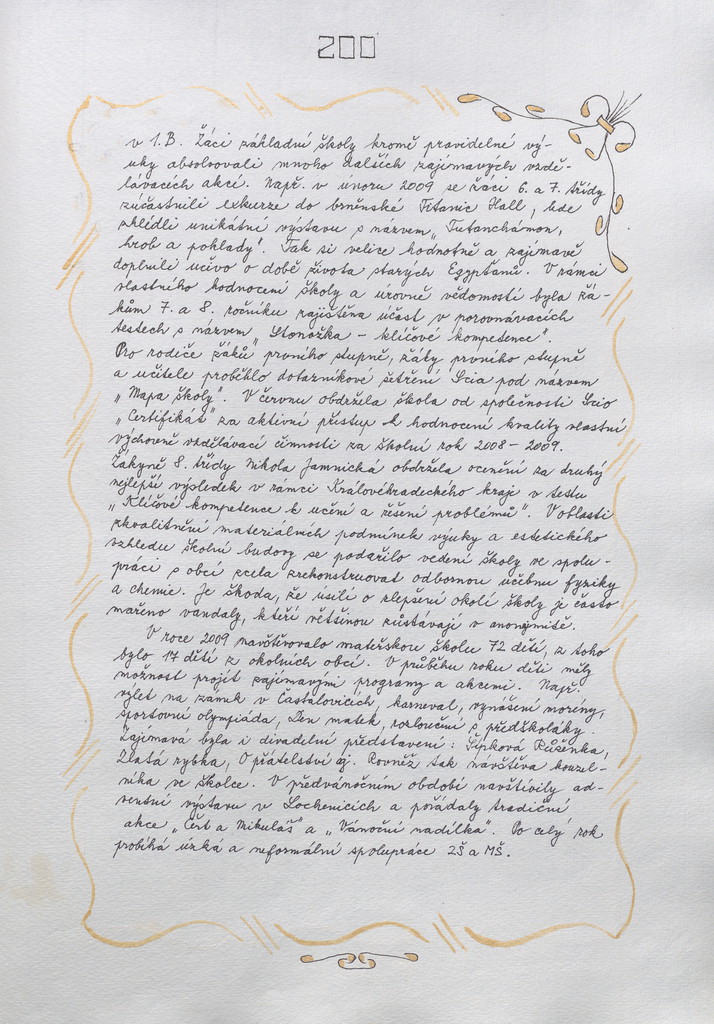 200
v 1.B. Žáci základní školy kromě pravidelné vý-
uky absolvovali mnoho dalších zajímavých vzdě-
lávacích akcí. Např. v únoru 2009 se žáci 6. a 7. třídy
zúčastnili exkurze do brněnské Titanic Hall, kde
zhlédli unikátní výstavu s názvem „Tutanchámon,
hrob a poklady". Tak si velice hodnotně a zajímavě
doplnili učivo o době života starých Egypťanů. V rámci
vlastního hodnocení školy a úrovně vědomostí byla žá-
kům 7. a 8. ročníku zajištěna účast v porovnávacích
testech s názvem „Stonožka - klíčové kompetence".
Pro rodiče žáků prvního stupně, žáky prvního stupně
a učitele proběhlo dotazníkové šetření Scia pod názvem
„Mapa školy". V červnu obdržela škola od společnosti Scio
„Certifikát" za aktivní přístup k hodnocení kvality vlastní
výchovně vzdělávací činnosti za školní rok 2008 - 2009.
Žákyně 8. třídy Nikola Jamnická obdržela ocenění za druhý
nejlepší výsledek v rámci Královéhradeckého kraje v testu
„Klíčové kompetence k učení a řešení problémů". V oblasti
zkvalitnění materiálních podmínek výuky a estetického
vzhledu školní budovy se podařilo vedení školy ve spolu-
práci s obcí zcela zrekonstruovat odbornou učebnu fyziky
a chemie. Je škoda, že úsilí o zlepšení okolí školy je často
mařeno vandaly, kteří většinou zůstávají v anonymitě.
V roce 2009 navštěvovalo mateřskou školu 72 dětí, z toho
bylo 17 dětí z okolních obcí. V průběhu roku děti měly
možnost projít zajímavými programy a akcemi. Např.
výlet na zámek v Častolovicích, karneval, vynášení morény,
sportovní olympiáda, Den matek, rozloučení s předškoláky.
Zajímavá byla i divadelní představení: Šípková Růženka,
Zlatá rybka, O přátelství aj. Rovněž tak návštěva kouzel-
níka ve školce. V předvánočním období navštívily ad-
ventní výstavu v Lochenicích a pořádaly tradiční
akce „Čert a Mikuláš" a „Vánoční nadílka". Po celý rok
probíhá úzká a neformální spolupráce ZŠ a MŠ.